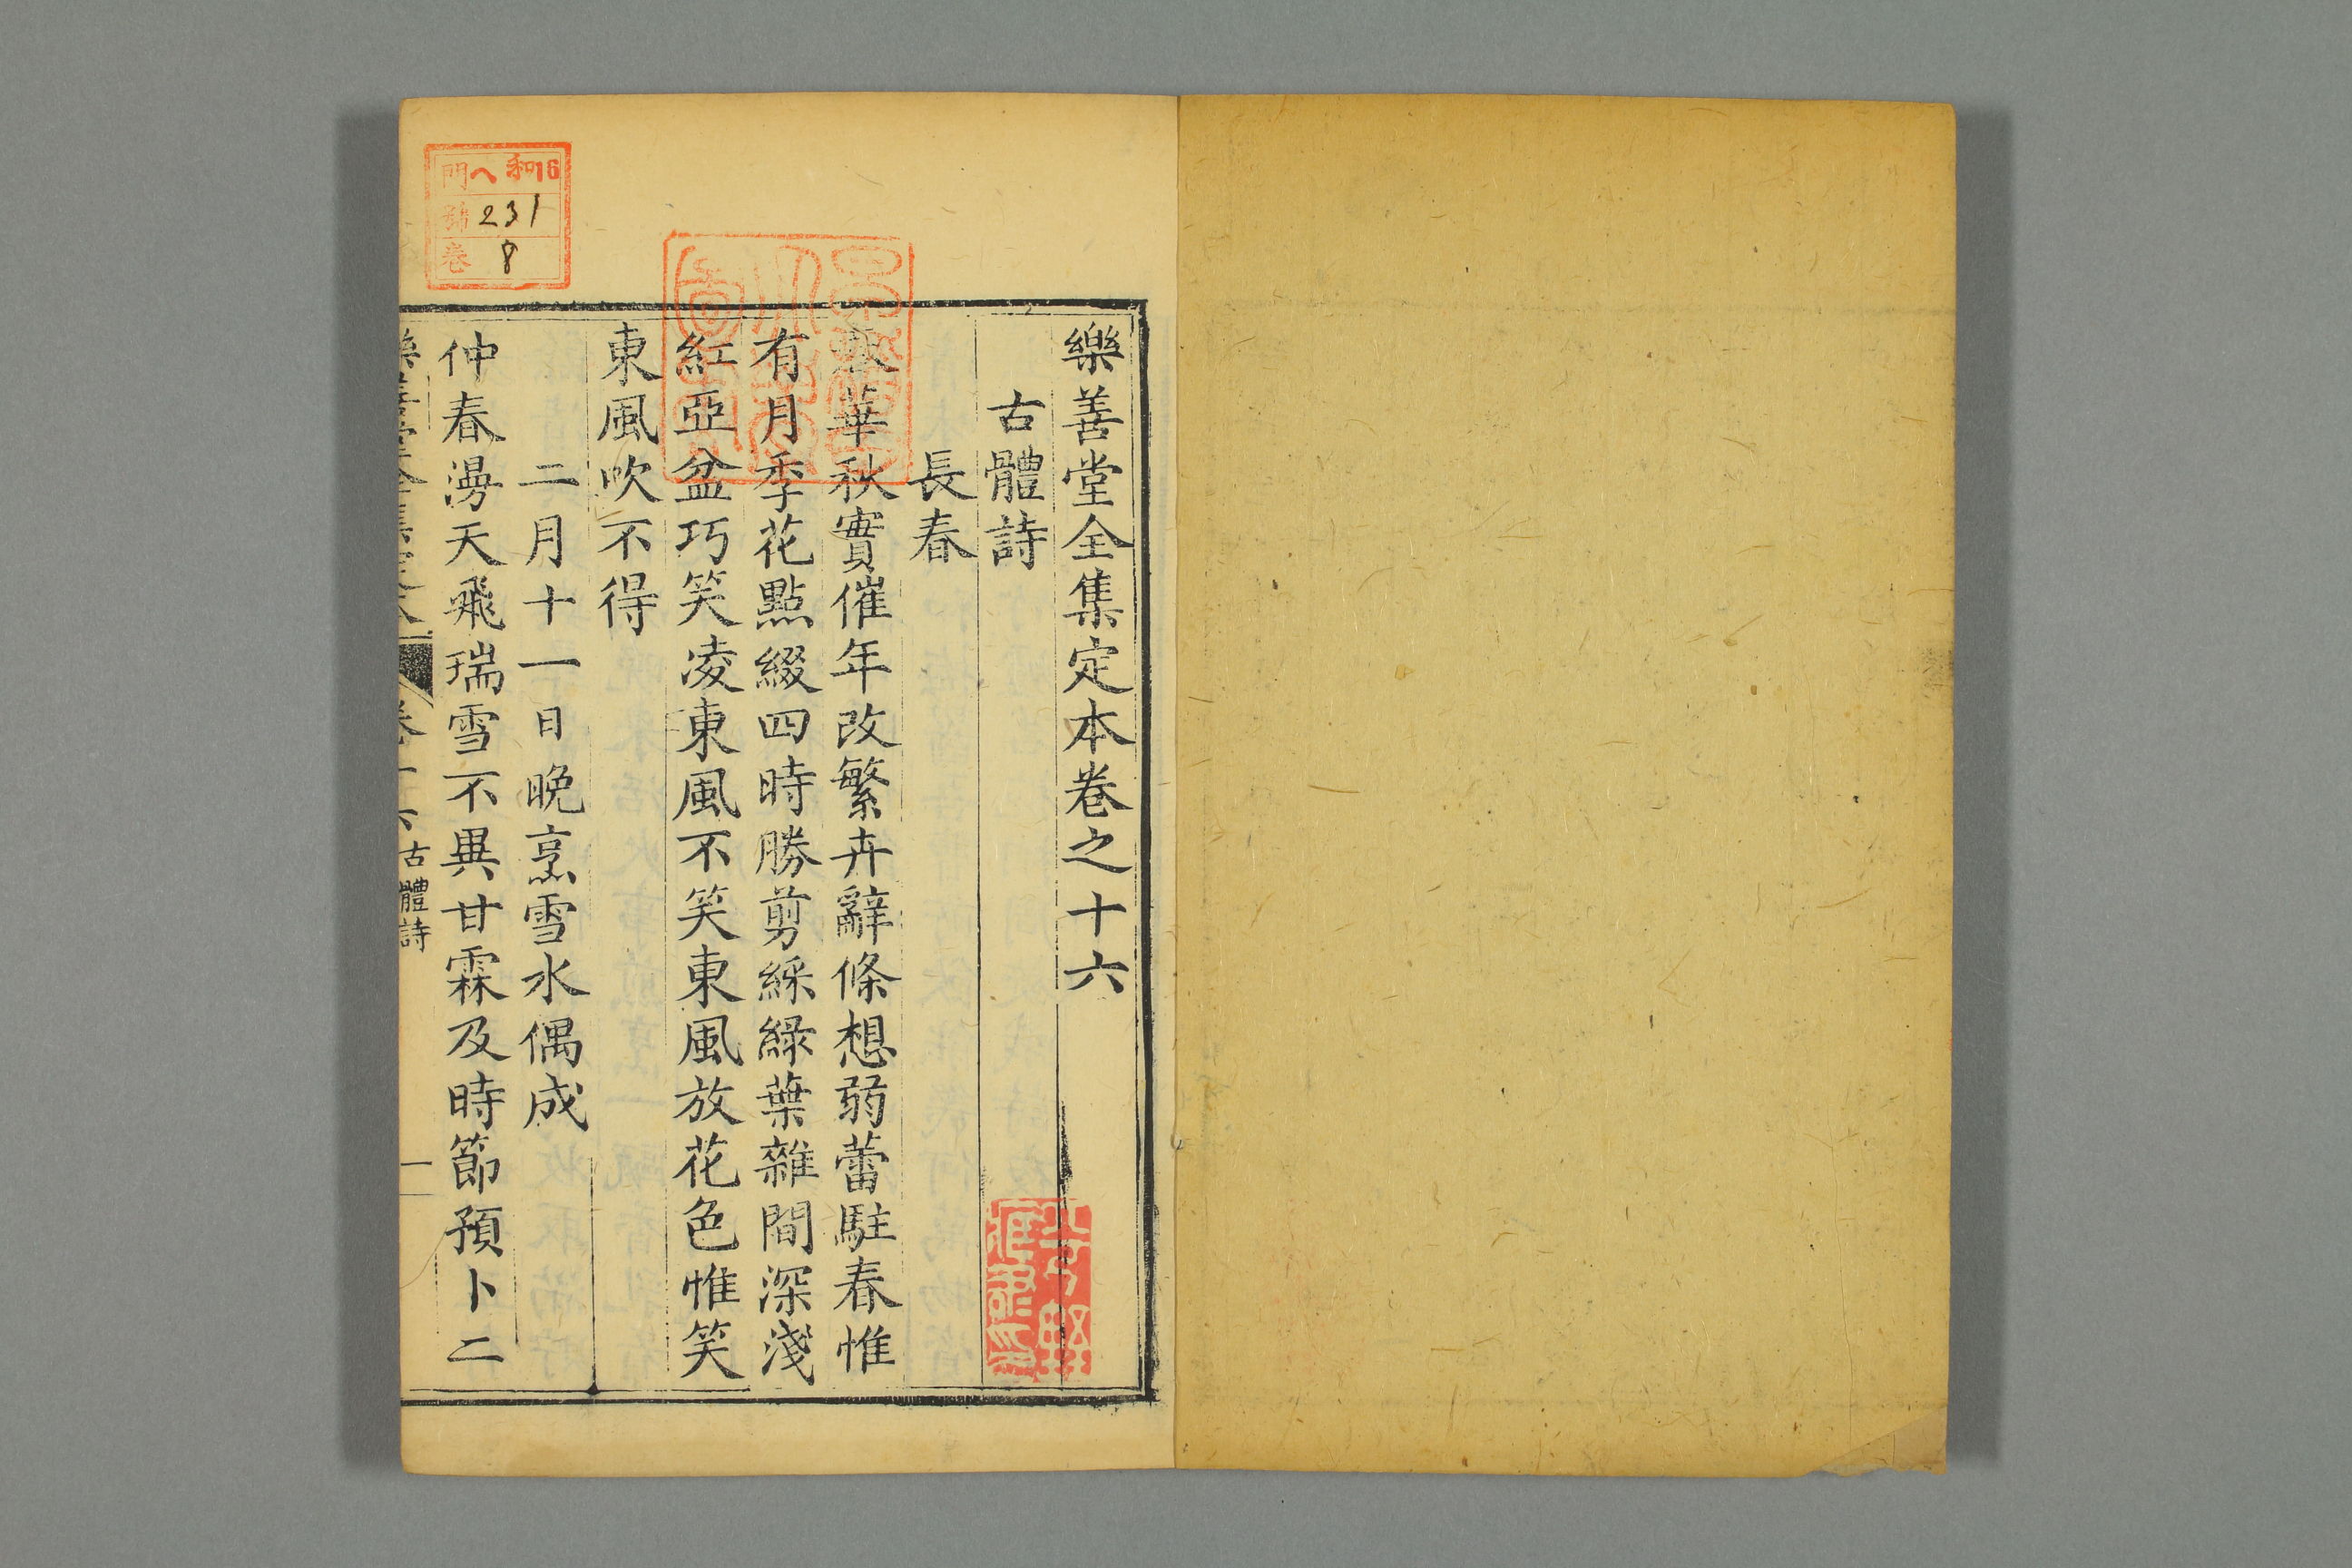 樂善堂全集定本卷之十六
古體詩
長春
華秋實催年改繁卉辭條想弱蕾駐春惟
有月季花點綴四時勝剪綵綠葉雜間深淺
紅亞盆巧笑凌東風不笑東風放花色惟笑
東風吹不得
二月十一日晚烹雪水偶成
仲春漫天飛瑞雪不異甘霖及時節預卜二
卷十六 古體詩 一
門 ヘ 和16
號 231
卷 8